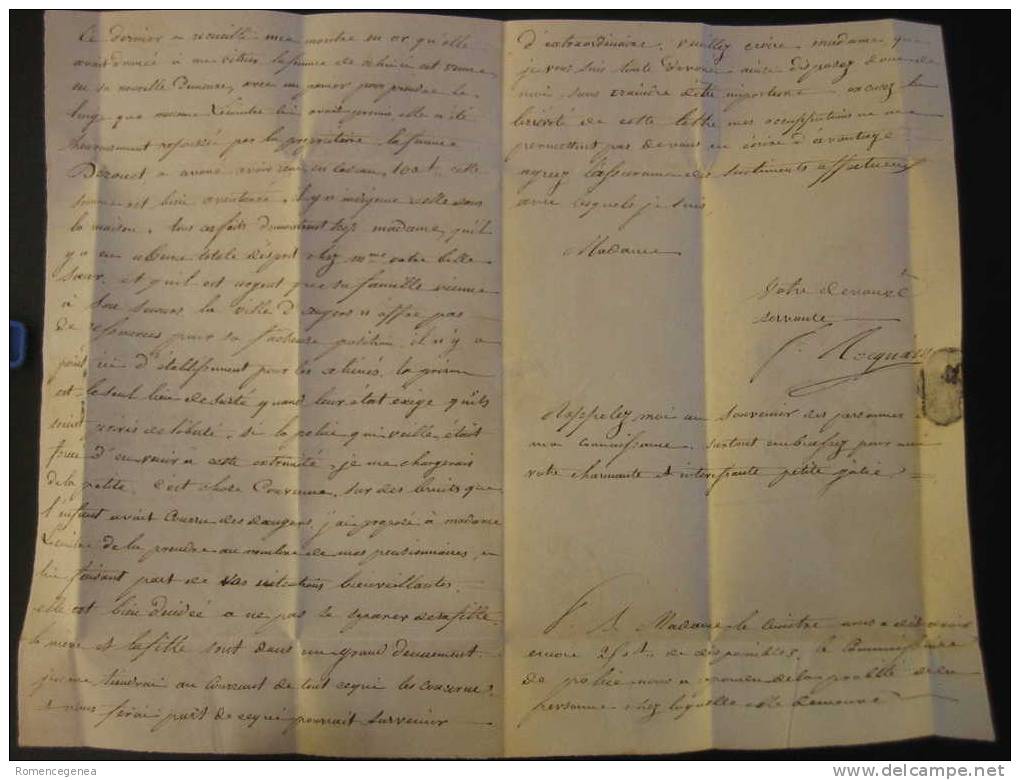 Ce dernier a recueilli une montre en or qu'elle
avait donnée à me vitres la femme de est venue
en sa nouvelle Demeure, avec un pour prendre le
linge que madame lui avait promis elle a été
heureusement repoussée par le propriétaire la femme
Derouet a avoué avoir reçu en cadeau, 100 f. cette
femme est bien
la maison, tous ces faits demontrent trop madame, qu'il
y a eu absence totale d'esprit chez mme votre belle
soeur, et qu'il est urgent que sa famille vienne
à Son secours la ville d'angers n'offre pas
de ressources pour sa facheuse position, il n'y a
point ici d'établissement pour les aliénés. la prison
est le seul lieu de sureté quand leur état exige qu'ils
soient privés de liberté. Si la police qui veille, était
forcée d'en venir à cette extremité, je me chargerais
de la petite, c'est chose Convenue, sur des bruits que
l'enfant avait Couru des dangers, j'ai proposé à madame
de la prendre au nombre de mes pensionnaires, en
lui faisant part de Vos intentions bienveillantes.
elle est bien decidée a ne pas se separer de sa fille.
la mere et la fille sont dans un grand denuement.
je me tiendrai au Courrant de tout ce qui les concerne,
et vous ferai part de ce qui pourrait Survenir
d'extraordinaire, veuillez croire, madame, que
je vous suis toute Devouée ainsi disposez donc de
moi, sans craindre d'être importune excusez la
brièveté de cette lettre mes occuppations ne me
permettent pas de vous en écrire d'avantage
agreez l'assurance des Sentiments affectueux
avec lesquels je suis,
Madame
Votre devouée
servante
f. Rocquain
Rappelez moi au Souvenir des personnes
ma connaissance, surtout embrassez pour moi
votre charmante et interessante petite
P. S. Madame nous a dit avoir
encore de disponibles, le Commissaire
de police nous a de la probité de la
personne chez laquelle elle demeure
Romencegenea
delcampe.net